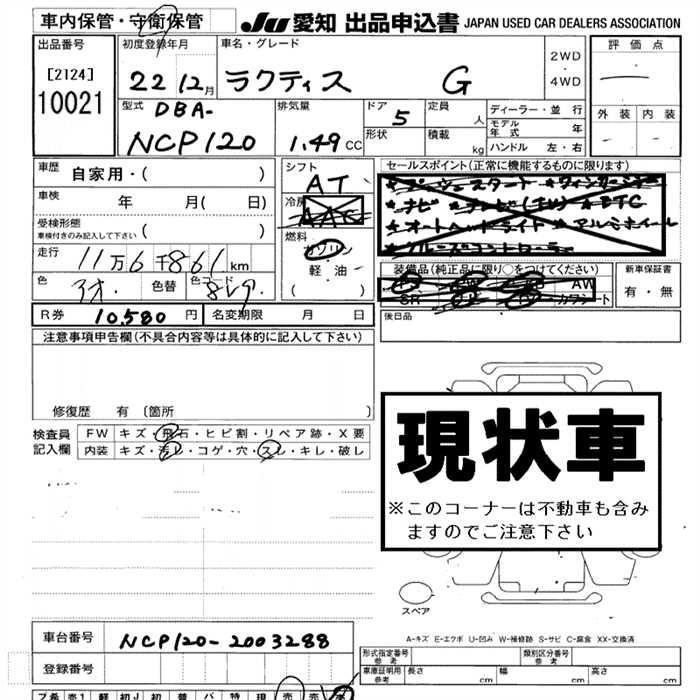 車内保管・守衛保管
JU 愛知 出品申込書 JAPAN USED CAR DEALERS ASSOCIATION
出品番号
[2124]
10021
初度登録年月
22 12月
車名・グレード
ラクティス G
2WD
・
4WD
評価点
外装 内装
型式
DBA-
NCP120
排気量
1.49 CC
ドア
5
形状
定員
人
積載
kg
ディーラー・並行
モデル年式 年
ハンドル 左・右
車歴
自家用・( )
車検 年 月( 日)
受検形態
車検付きのみ記入して下さい ( )
走行
11万6千861km
色
色替
シフト
AT
冷房
AAC
燃料
ガソリン
軽・油
( )
セールスポイント(正常に機能するものに限ります)
★プッシュスタート ★ウィンカーミラー
★ナビ ★テレビ(TV) ★ETC
★オートヘッドライト ★アルミホイール
★クルーズコントローラー
装備品(純正品に限り○をつけてください)
AW
SR カワシート
新車保証書
有・無
R券 10,580 円
名変期限 月 日
後日品
注意事項申告欄(不具合内容等は具体的に記入して下さい)
修復歴 有 〔箇所 〕
検査員
記入欄
FW キズ・飛石・ヒビ割・リペア跡・X要
内装 キズ・汚レ・コゲ・穴・スレ・キレ・破レ
現状車
※このコーナーは不動車も含み
ますのでご注意下さい
スペア
A-キズ E-エクボ U-凹み W-補修跡 S-サビ C-腐食 XX-交換済
車台番号 NCP120-2003288
登録番号
形式指定番号
参考
類別区分番号
参考
車庫証明用
参考
長さ cm 幅 cm 高さ cm